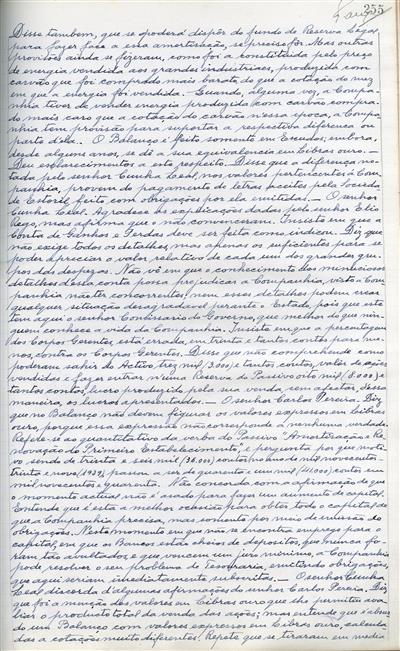 255
Disse tambem, que se poderá dispôr do fundo de Reserva Legal
para fazer face a essa amortisação, se preciso fôr. Mas outras
provisões ainda se fizeram, como foi a constituida pelo preço
de energia vendida aos grandes industriaes, produzida com
carvão que foi comprado mais barato do que a cotação do mez
em que a energia foi vendida. Quando, alguma vez, a Compa-
nhia tiver de vender energia produzida com carvão compra-
do mais caro que a cotação do carvão n'essa época, a Compa-
nhia tem provisão para suportar a respectiva diferença ou
parte d'ela. O Balanço é feito somente em Escudos, embora,
desde alguns anos, se dê a sua equivalencia em Libras ouro.
Deu esclarecimentos a este respeito. Disse que a diferença no-
tada pelo senhor Cunha Leal, nos valores pertencentes á Com-
panhia, provem do pagamento de letras aceites pela Socieda-
de Estoril, feito com obrigações por ela emitidas. — O senhor
Cunha Leal. Agradece as explicações dadas pelo senhor Elio
Rego, mas afirma que o não convenceram. Insiste em que a
Conta de Ganhos e Perdas deve ser feita como indicou. Diz que
não exige todos os detalhes, mas apenas os suficientes para se
poder apreciar o valor relativo de cada um dos grandes gru-
pos das despezas. Não vê em que o conhecimento dos minuciosos
detalhes d'essa conta possa prejudicar a Companhia, visto a Com-
panhia não ter concorrentes, nem esses detalhes podem crear
qualquer situação desagradavel perante o Estado, pois que este
tem aqui o senhor Comissario do Governo, que melhor do que nin-
guem conhece a vida da Companhia. Insiste em que a percentagem
dos Corpos Gerentes está errada, em trinta e tantos contos para me-
nos, contra os Corpos Gerentes. Disse que não comprehende como
poderam sahir do Activo, trez mil (3.000) e tantos contos, valor de acções
vendidas e fazer entrar n'uma Reserva do Passivo oito mil (8.000) e
tantos contos, lucro produzido pela sua venda, sem afectar, d'essa
maneira, os lucros apresentados. — O senhor Carlos Pereira. Diz
que no Balanço não devem figurar os valores expressos em Libras
ouro, porque essa expressão não corresponde a nenhuma verdade.
Refere-se ao quantitativo da verba do Passivo "Amortisação e Re-
novação do Primeiro Estabelecimento", e pergunta por que moti-
vo, sendo de trinta e seis mil (36.000) contos no ano de mil novecentos e
trinta e nove (1939), passou a ser de quarenta e um mil (41.000) contos em
mil novecentos e quarenta. Não concorda com a afirmação de que
o momento actual não é asado para fazer um aumento de capital.
Entende que é esta a melhor ocasião para obter todo o capital de
que a Companhia precisa, mas somente por meio de emissão de
obrigações. N'este momento em que não se encontra emprego para o
capital, em que os Bancos estão cheios de depositos, que nunca fo-
ram tão avultados, e que vencem um juro minimo, a Companhia
pode resolver o seu problema de Tesouraria, emitindo obrigações,
que aqui seriam imediatamente subscritas. — O senhor Cunha
Leal discorda d'algumas afirmações do senhor Carlos Pereira. Diz
que foi a menção dos valores em Libras ouro que lhe permitiu ava-
liar o producto total da venda das ações; mas entende que é absur-
do um Balanço com valores expressos em Libras ouro, calcula-
das a cotações muito diferentes. Repete que se tiraram em media